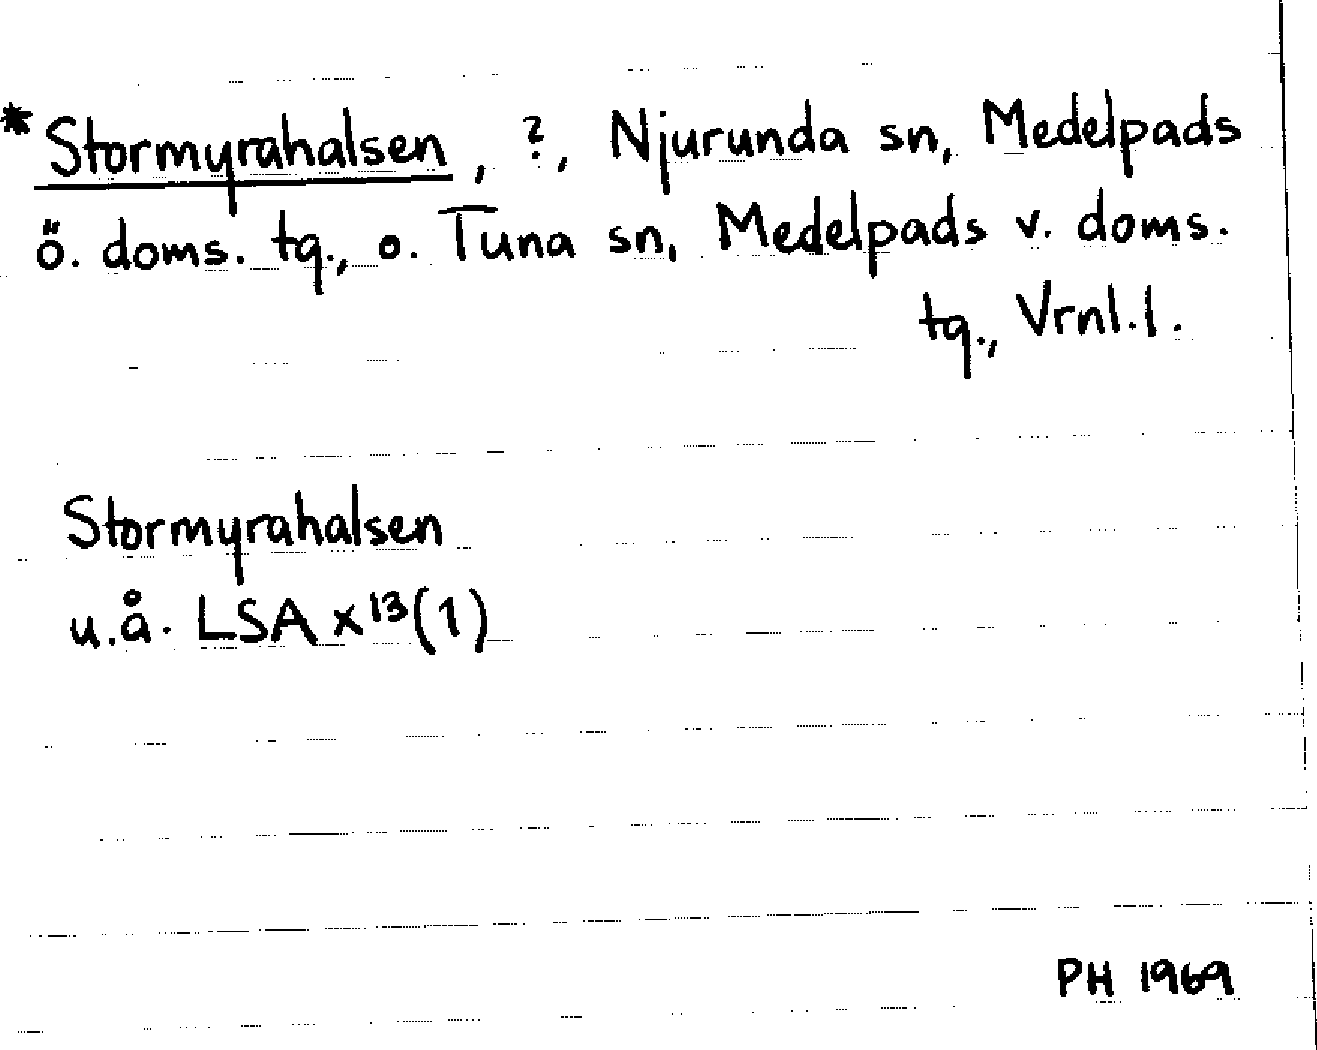 *Stormyrahalsen, ?, Njurunda sn, Medelpads
ö. doms. tg., o. Tuna sn, Medelpads v. doms.
tg., Vrnl. l.
Stormyrahalsen
u.å. LSA x¹³(1)
PH 1969